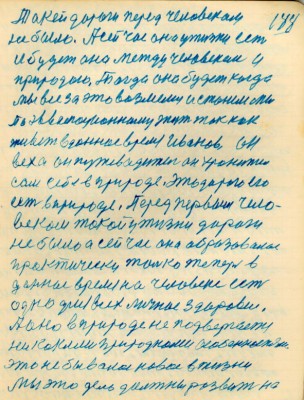 178
Такей дороги перед человеком
небыло. А сейчас она у жизни есть
и будет она между человеком и
природою. Тогда она будет когда
мы все за это возмемся и станем мы
по эволюционному жить так как
живет в данное время Иванов. Он
веха он путеводитель он хронитель
сам себе в природе. Это дорога его
ест в природе. Перед первым чело-
веком такой у жизни дороги
небыло а сейчас она образовалас
практически только теперь в
данное время на человеке ест
одно для всех личное здоровие.
Ано в природе не подвергаетс
никоким природным
это небывалое новое в жизни
Мы это дело должны розвит на